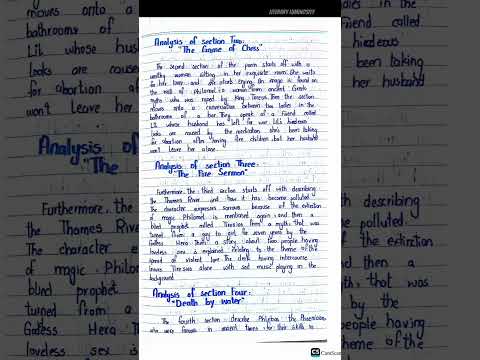 LITERARY LUMINOSITY
Analysis of section Two:
"The Game of Chess"
The second section of the poem starts off with a
wealthy woman sitting in her exquisite room. She waits
for her lover and
starts
An image is found on
the wall of Philomel, a woman from ancient Greek
myths who was raped by King Tereus. Then the section
moves onto a conversation between two ladies in the
bathrooms of a bar. They speak of a friend called
Lil whose husband has left for war. Lil's hideous
looks are caused by the medication she's been taking
for abortion after having five children but her husband
won't leave her alone.
Analysis of section Three:
"The Fire Sermon"
Furthermore, the third section starts off with describing
the Thames River and how it has become polluted.
The character expresses sorrow because of the extinction
of magic. Philomel is mentioned again and then a
blind prophet called Tiresias from a myth, that was
turned from a guy to girl for seven years by the
Goddess Hera. Then a story about two people having
loveless sex is explained relating to the theme of the
of
love. The
having intercourse
leaves Tiresias alone with sad music playing in the
background.
Analysis of section Four:
"Death by water"
The fourth section describe Phlebas the Phoenician,
who were famous in ancient times for their skills in
moves onto a
bathrooms of
Lil whose
looks are cause
for abortion af
won't leave her
Analysis
"The
Furthermore, the
the Thames River
The character e
of magic. Philom
blind prophet
turned from a
Goddess Hera. The
loveless sex is
friend called
hideous
been taking
her husband
describing
polluted.
the extinction
and then a
that was
by the
people having
theme of the
CS CamScanner